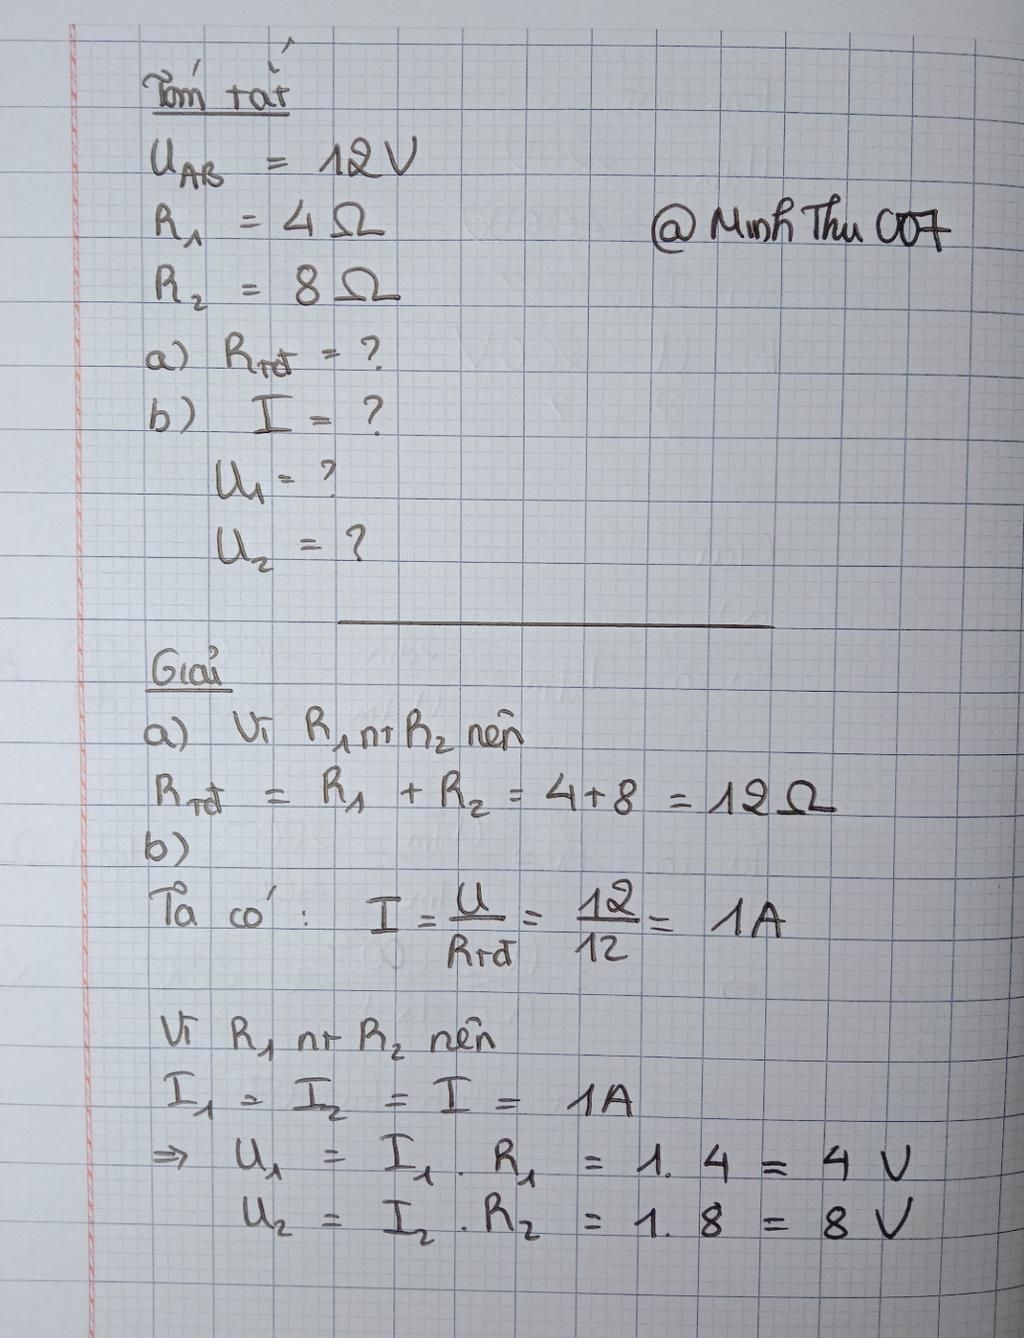 Tóm tắt
U_AB = 12V
R₁ = 4 Ω
@ Minh Thu 007
R₂ = 8 Ω
a) Rtđ = ?
b) I = ?
U₁ = ?
U₂ = ?
Giải
a) Vì R₁ nt R₂ nên
Rtđ = R₁ + R₂ = 4+8 = 12 Ω
b)
Ta có : I = U/Rtđ = 12/12 = 1A
Vì R₁ nt R₂ nên
I₁ = I₂ = I = 1A
⇒ U₁ = I₁ . R₁ = 1. 4 = 4 V
U₂ = I₂ . R₂ = 1. 8 = 8 V